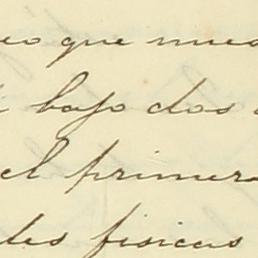 eo que nues
bajo dos
el primer
les fisicas